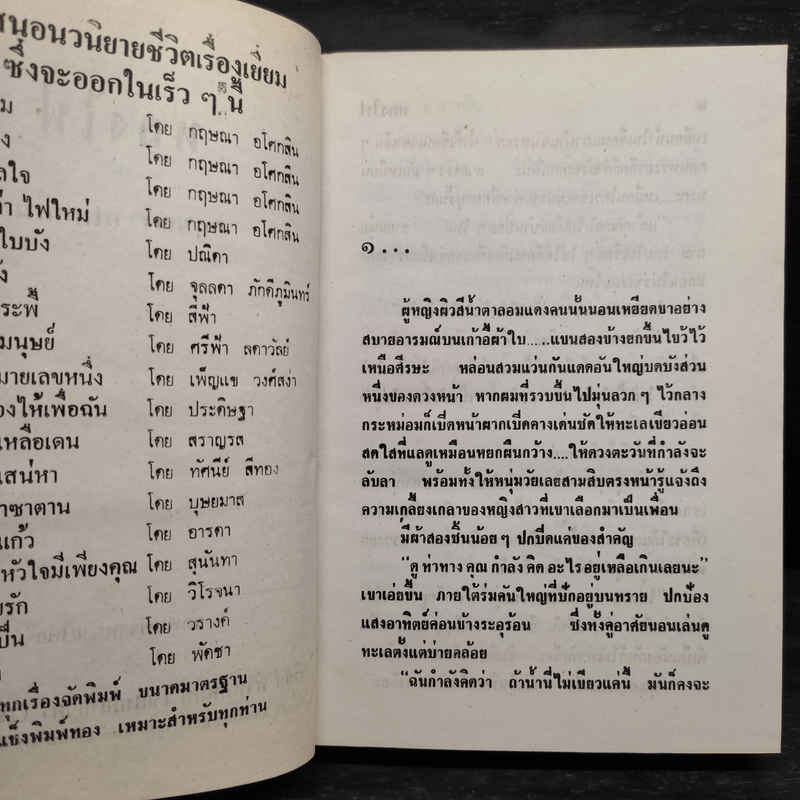 สนอนวนิยายชีวิตเรื่องเยี่ยม
ซึ่งจะออกในเร็ว ๆ นี้
ม โดย กฤษณา อโศกสิน
ง โดย กฤษณา อโศกสิน
ลใจ โดย กฤษณา อโศกสิน
ไฟใหม่ โดย กฤษณา อโศกสิน
ใบบัง โดย ปณิตา
ัง โดย จุลลดา ภักดีภูมินทร์
ระพี้ โดย สีฟ้า
มนุษย์ โดย ศรีฟ้า ลดาวัลย์
มายเลขหนึ่ง โดย เพ็ญแข วงศ์สง่า
องไห้เพื่อฉัน โดย ประดิษฐา
เหลือเดน โดย สราญรส
เสน่หา โดย ทัศนีย์ สีทอง
าซาตาน โดย บุษยมาส
แก้ว โดย อารดา
หัวใจมีเพียงคุณ โดย สุนันทา
ยรัก โดย วิโรจนา
ป็น โดย วรางค์
โดย พัดชา
ทุกเรื่องจัดพิมพ์ ขนาดมาตรฐาน
แข็งพิมพ์ทอง เหมาะสำหรับทุกท่าน
๑...
ผู้หญิงผิวสีน้ำตาลอมแดงคนนั้นนอนเหยียดขาอย่าง
สบายอารมณ์บนเก้าอี้ผ้าใบ.....แขนสองข้างยกขึ้นไขว้ไว้
เหนือศีรษะ หล่อนสวมแว่นกันแดดอันใหญ่บดบังส่วน
หนึ่งของดวงหน้า หากผมที่รวบขึ้นไปมุ่นลวก ๆ ไว้กลาง
กระหม่อมก็เปิดหน้าผากเปิดคางเด่นชัดให้ทะเลเขียวอ่อน
สดใสที่แลดูเหมือนหยกผืนกว้าง....ให้ดวงตะวันที่กำลังจะ
ลับลา พร้อมทั้งให้หนุ่มวัยเลยสามสิบตรงหน้ารู้แจ้งถึง
ความเกลี้ยงเกลาของหญิงสาวที่เขาเลือกมาเป็นเพื่อน
มีผ้าสองชิ้นน้อย ๆ ปกปิดแค่ของสำคัญ
“ดู ท่าทาง คุณ กำลัง คิด อะไร อยู่ เหลือเกินเลยนะ”
เขาเอ่ยขึ้น ภายใต้ร่มคันใหญ่ที่ปักอยู่บนทราย ปกป้อง
แสงอาทิตย์ค่อนข้างระอุร้อน ซึ่งทั้งคู่อาศัยนอนเล่นดู
ทะเลตั้งแต่บ่ายคล้อย
“ฉันกำลังคิดว่า ถ้าน้ำนี่ไม่เขียวแค่นี้ มันก็คงจะ